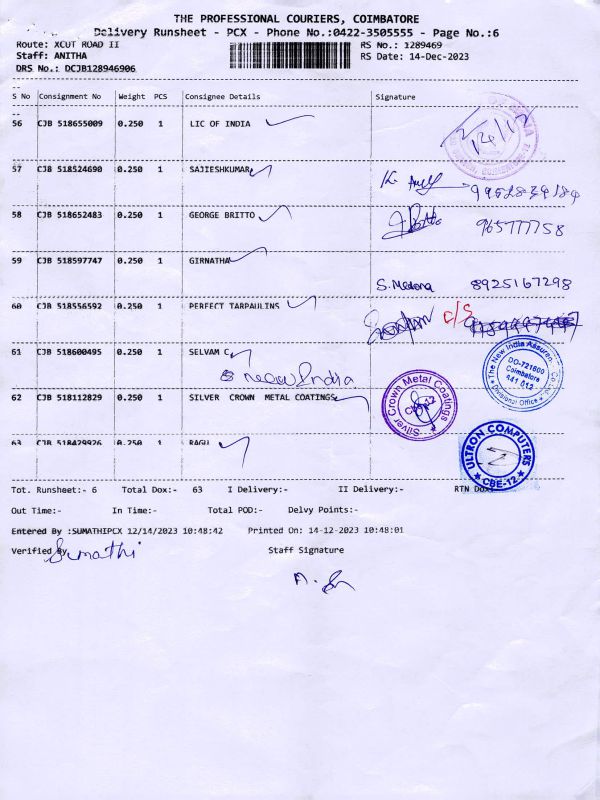 THE PROFESSIONAL COURIERS, COIMBATORE
Delivery Runsheet - PCX - Phone No.:0422-3505555 - Page No.:6
Route: XCUT ROAD II RS No.: 1289469
Staff: ANITHA RS Date: 14-Dec-2023
DRS No.: DCJB128946906
S No Consignment No Weight PCS Consignee Details Signature
56 CJB 518655009 0.250 1 LIC OF INDIA
57 CJB 518524690 0.250 1 SAJIESHKUMAR
58 CJB 518652483 0.250 1 GEORGE BRITTO
965777758
59 CJB 518597747 0.250 1 GIRNATHA
S. Medona 8925167298
60 CJB 518556592 0.250 1 PERFECT TARPAULINS
C/S
61 CJB 518600495 0.250 1 SELVAM C
New India
The New India Assuran. Co.
DO-721600
Coimbatore
641 012
Divisional Office
62 CJB 518112829 0.250 1 SILVER CROWN METAL COATINGS
Silver Crown Metal Coatings
CBE-12
63 CJB 518429926 0.250 1 RAGU
ULTRON COMPUTERS
CBE-12
Tot. Runsheet:- 6 Total Dox:- 63 I Delivery:- II Delivery:- RTN Dox:
Out Time:- In Time:- Total POD:- Delvy Points:-
Entered By :SUMATHIPCX 12/14/2023 10:48:42 Printed On: 14-12-2023 10:48:01
Verified By Sumathi Staff Signature